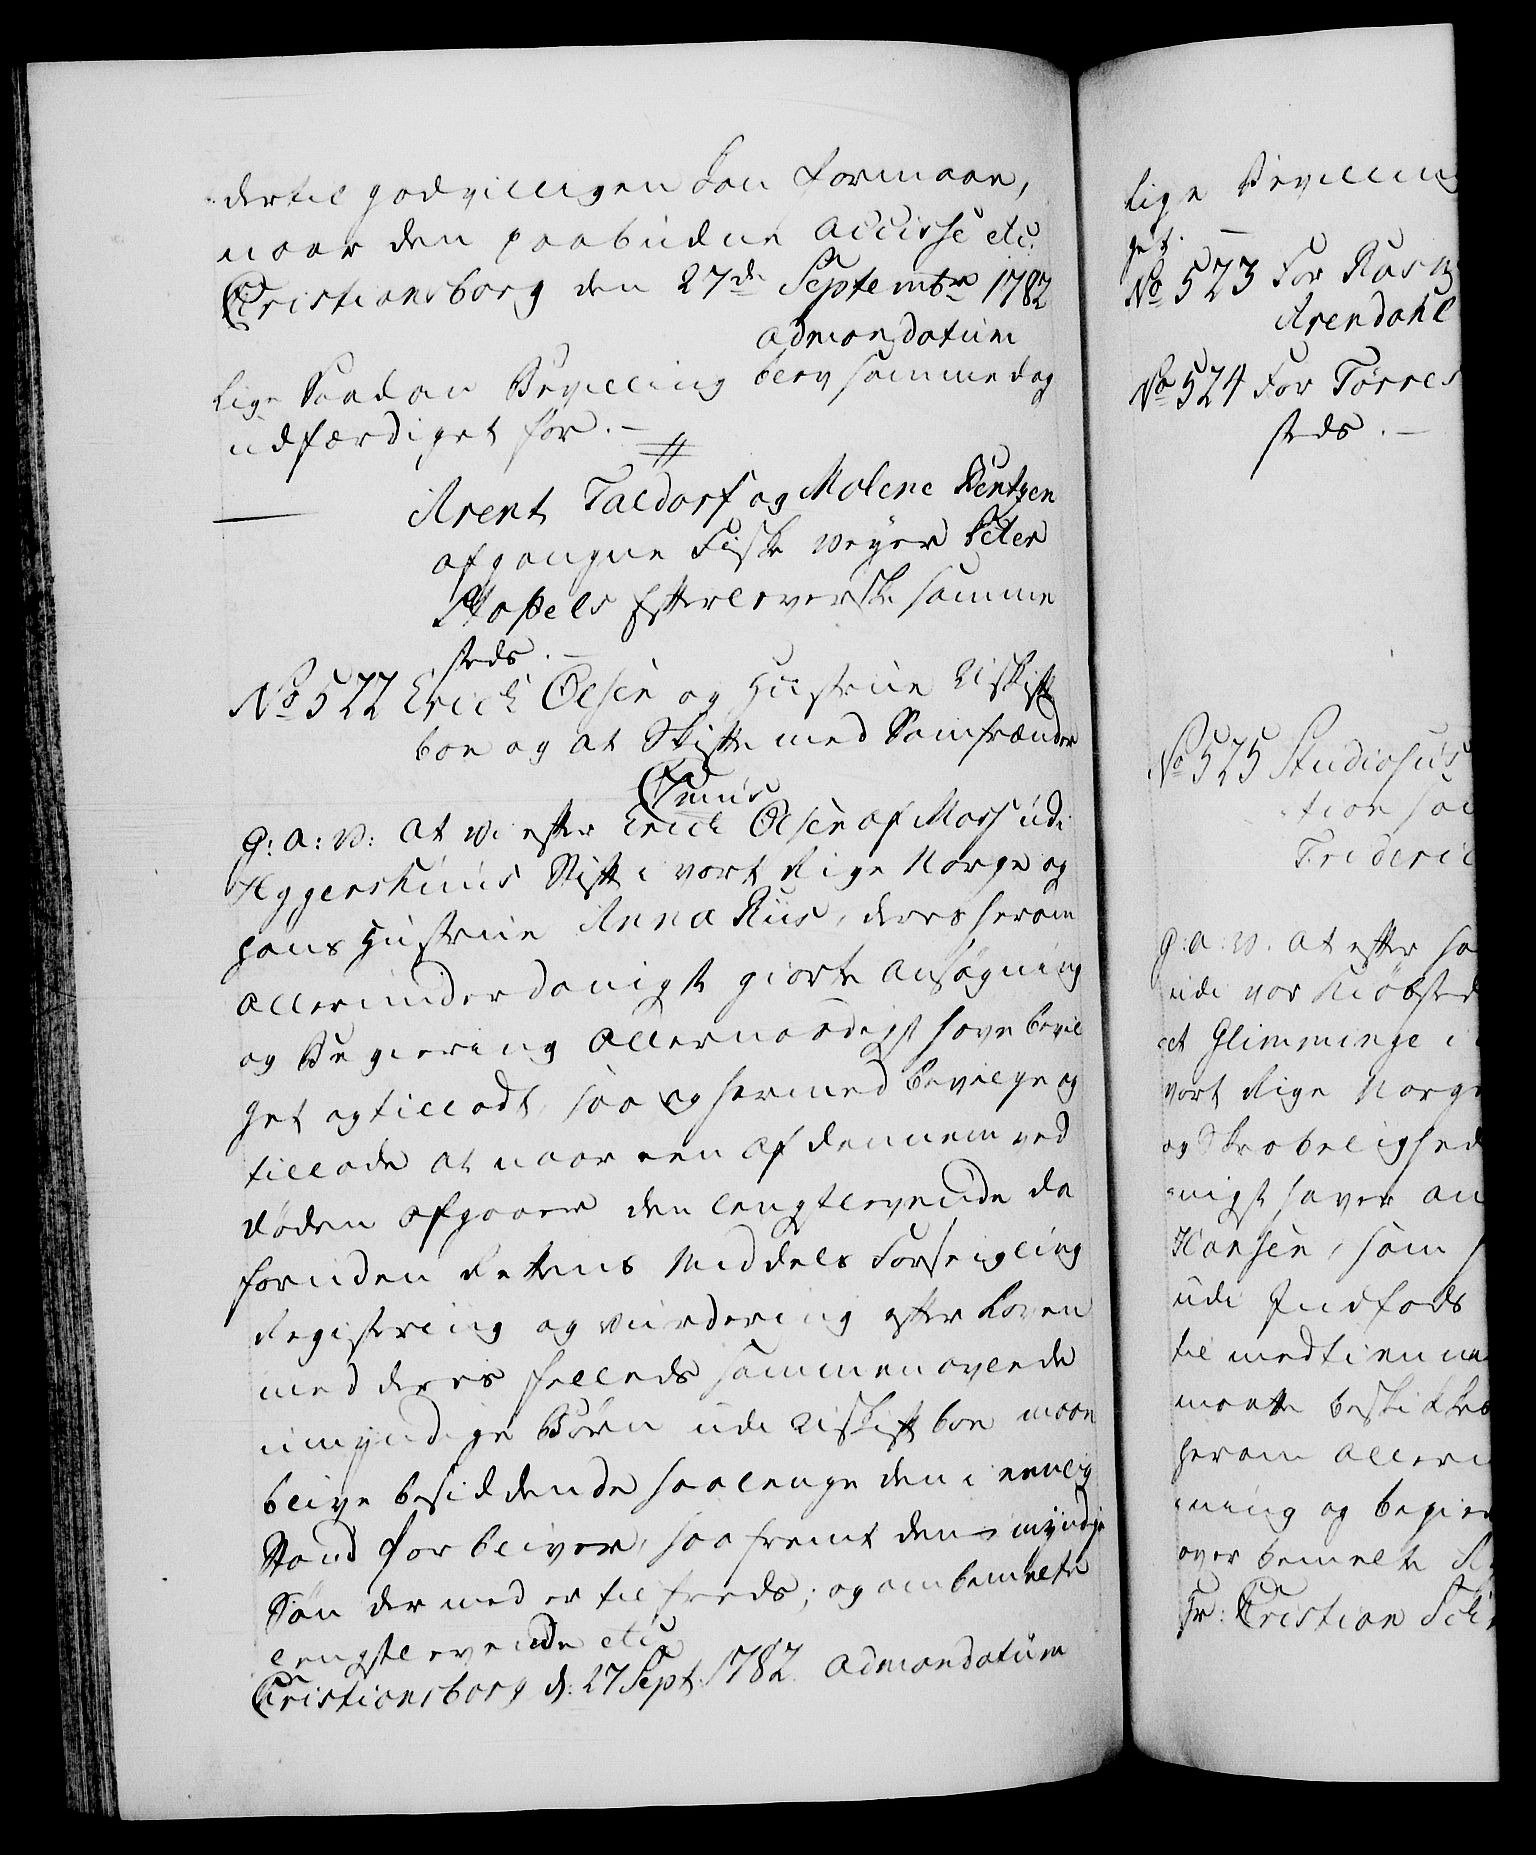 dertil godvilligen kan formaae,
naar den paabudne accisse etc.
Cristiansborg den 27de Septembr 1782
admandatum
lige Saadan Bevilling blev samme dag
udfærdiget for. –
Arent Taldorf og Malene Bentzen
afgangne Fiske veyer Peter
Stapels Efterleverske samme
steds. –
No 522 Erich Olsen og Hustrue Uskift
boe og at Skifte med Samfrænder
C7mus
G: A: V: At Vi efter Erich Olsen af Moss udi
Aggershuus Stift i vort Rige Norge og
hans Hustrue Anna Riis, deres herom
allerunderdanigst giorte ansøgning
og Begiering allernaadigst have bevil
get og tilladt, saa og hermed bevilge og
tillade at naar een af dennem ved
døden afgaaer den lengstlevende da
foruden Rettens Middels Forseigling
Registering og vurdering efter Loven
med deres fælleds sammenavlede
umyndige Børn udi Uskift boe maae
blive besiddende saalenge den i eenlig
Stand forbliver, saafremt den myndige
Søn der med er tilfreds; og om bemelte
lengstlevende etc
Cristiansborg d: 27 Sept: 1782. admandatum
lige Bevilling
get. –
No 523 For Rasm
Arendahl
No 524 For Tørres
steds. –
No 525 Studiosus
tion
Frideric
G: A: V. At efter
udi vor Kiøbsted
et Glimminge i
vort Rige Norge
og Skrøbelighed
nigst haver an
Hansen, som
udi Indføds
til medtienne
maatte beskikkes
herom allern
ning og begier
over bemelte
Hr: Cristian